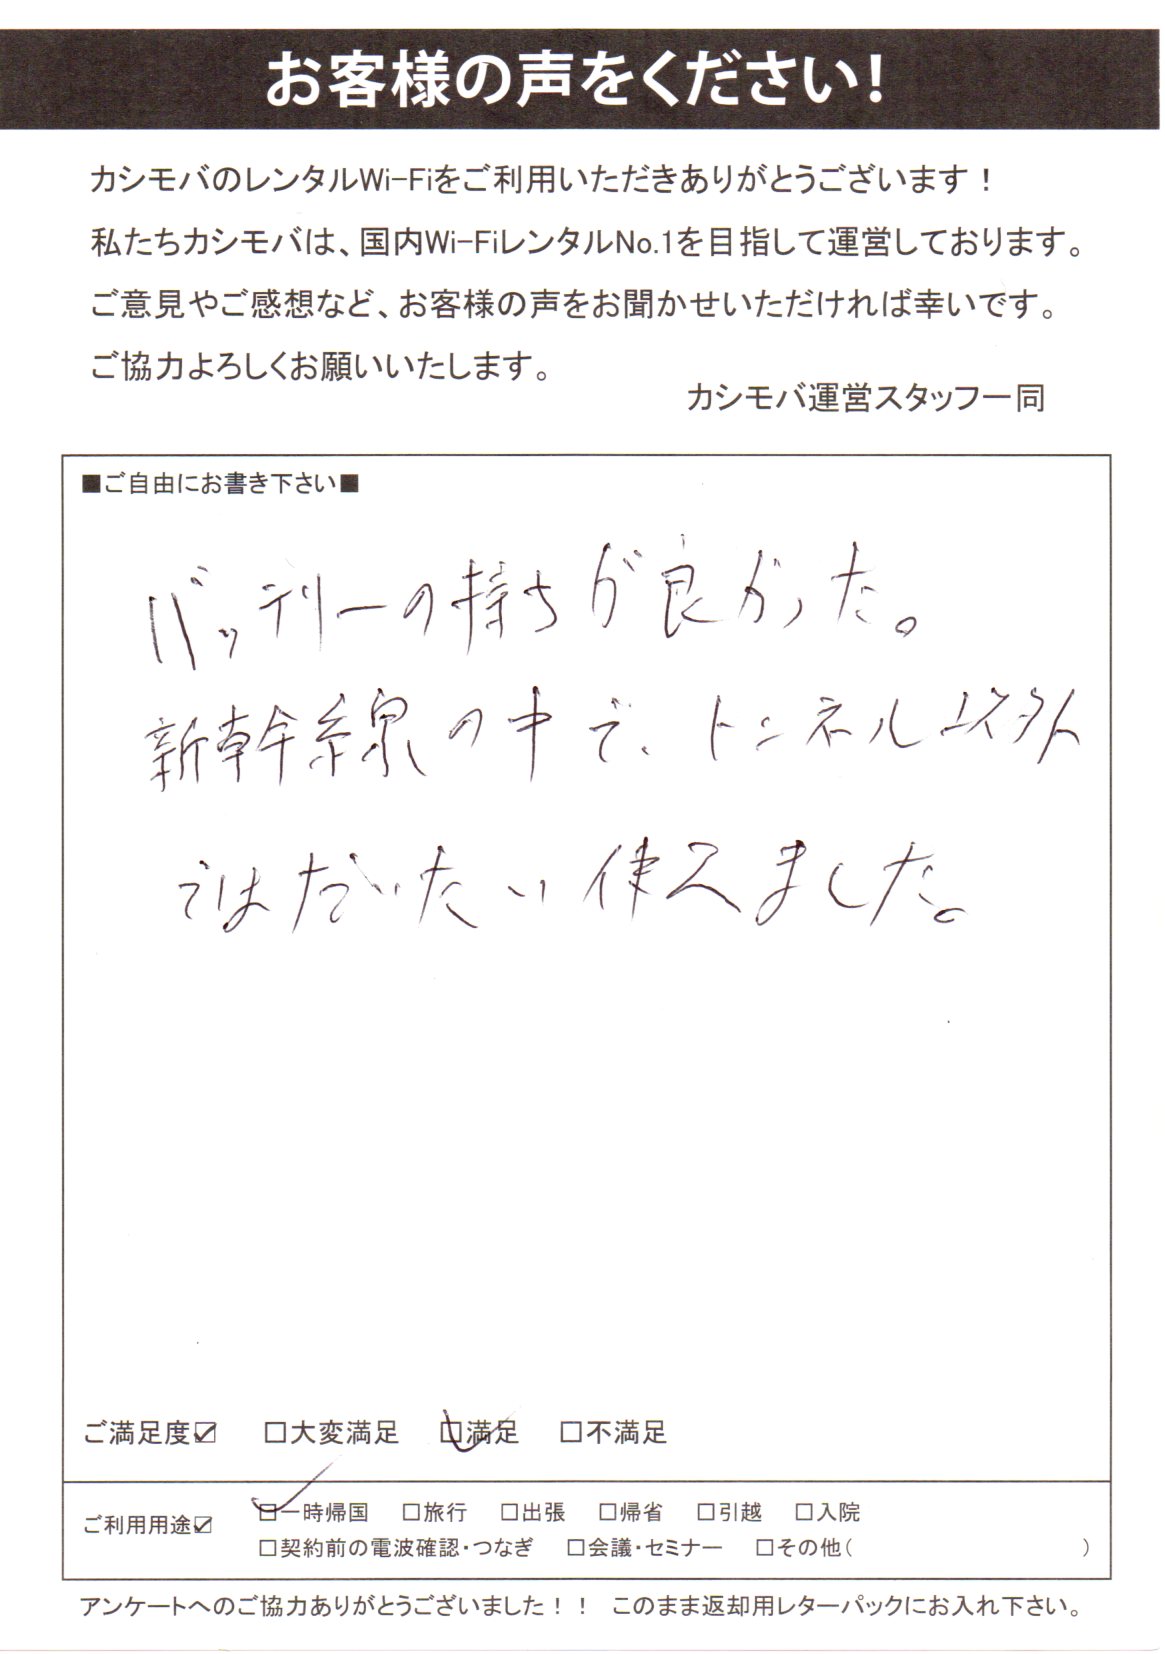 お客様の声をください!
カシモバのレンタルWi-Fiをご利用いただきありがとうございます！
私たちカシモバは、国内Wi-FiレンタルNo.1を目指して運営しております。
ご意見やご感想など、お客様の声をお聞かせいただければ幸いです。
ご協力よろしくお願いいたします。
カシモバ運営スタッフ一同
■ご自由にお書き下さい■
バッテリーの持ちが良かった。
新幹線の中で、トンネル以外
ではだいたい使えました。
ご満足度☑ □大変満足 ☑満足 □不満足
ご利用用途☑ ☑一時帰国 □旅行 □出張 □帰省 □引越 □入院
□契約前の電波確認・つなぎ □会議・セミナー □その他( )
アンケートへのご協力ありがとうございました！！ このまま返却用レターパックにお入れ下さい。